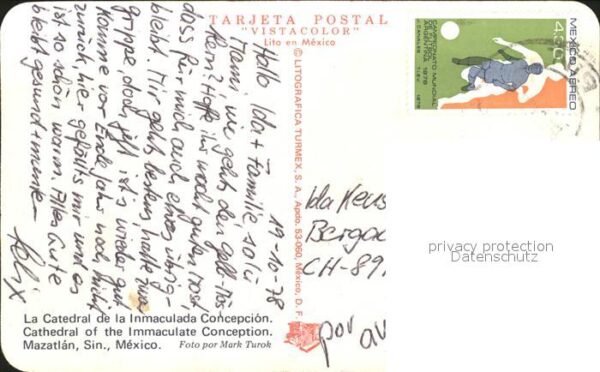 TARJETA POSTAL
"VISTACOLOR"
Lito en México
© LITOGRAFICA TURMEX, S. A., Apdo. 53-060, México, D. F.
MEXICO AEREO
4.30
CAMPEONATO MUNDIAL
DE FUTBOL
ARGENTINA 1978
19-10-78
Hallo Ida + Familie salü
Mami, wie geht's den
Hoffe ihr macht guten
dass für mich auch etwas übrig-
bleibt. Mir geht's bestens, hatte zwar
Grippe, doch jetzt ist's wieder gut
Komme vor Ende Jahr noch nicht
zurück, hier gefällts mir und es
ist so schön warm. Alles Gute
bleibt gesund + munter
Felix
Ida
CH-89
por av
privacy protection
Datenschutz
La Catedral de la Inmaculada Concepción.
Cathedral of the Immaculate Conception.
Mazatlán, Sin., México. Foto por Mark Turok